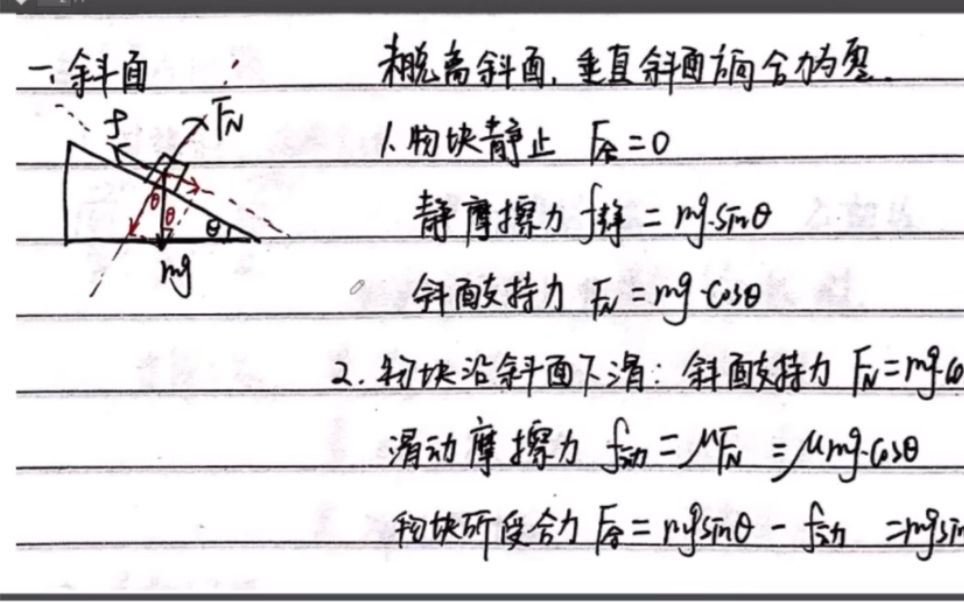 一、斜面
未脱离斜面，垂直斜面方向合力为零.
f
F_N
θ
θ
θ
mg
1. 物块静止 F合=0
静摩擦力 f静 = mg·sinθ
斜面支持力 F_N = mg·cosθ
2. 物块沿斜面下滑: 斜面支持力 F_N=mg·co
滑动摩擦力 f动 = μF_N = μmg·cosθ
物块所受合力 F合 = mgsinθ - f动 =mgsin